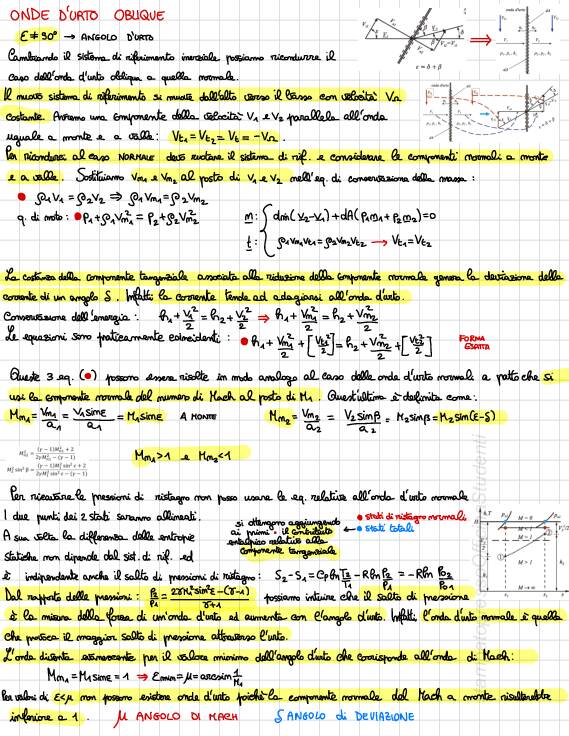 ONDE D'URTO OBLIQUE
ε ≠ 90° → ANGOLO D'URTO
Cambiando il sistema di riferimento inerziale possiamo ricondurre il
caso dell'onda d'urto obliqua a quella normale.
Il nuovo sistema di riferimento si muove dall'alto verso il basso con velocità Vn
costante. Avremo una componente della velocità V1 e V2 parallela all'onda
uguale a monte e a valle: Vt1 = Vt2 = Vt = -Vn.
Per ricondursi al caso NORMALE devo ruotare il sistema di rif. e considerare le componenti normali a monte
e a valle. Sostituiamo Vn1 e Vn2 al posto di V1 e V2 nell'eq. di conservazione della massa:
• ρ1V1 = ρ2V2 ⇒ ρ1Vn1 = ρ2Vn2
q. di moto: • P1+ρ1Vn1² = P2+ρ2Vn2²
n: dm(V2-V1)+dA(P1n1+P2n2)=0
t: ρ1Vn1Vt1 = ρ2Vn2Vt2 → Vt1=Vt2
La costanza della componente tangenziale associata alla riduzione della componente normale genera la deviazione della
corrente di un angolo δ. Infatti la corrente tende ad adagiarsi all'onda d'urto.
Conservazione dell'energia: h1+V1²/2 = h2+V2²/2 ⇒ h1+Vn1²/2 = h2+Vn2²/2
Le equazioni sono praticamente coincidenti: • h1+Vn1²/2+[Vt1²/2] = h2+Vn2²/2+[Vt2²/2] FORMA ESATTA
Queste 3 eq. (•) possono essere risolte in modo analogo al caso delle onde d'urto normali a patto che si
usi la componente normale del numero di Mach al posto di M1. Quest'ultima è definita come:
Mn1 = Vn1/a1 = V1 sinε/a1 = M1 sinε A MONTE Mn2 = Vn2/a2 = V2 sinβ/a2 = M2 sinβ = M2 sin(ε-δ)
Mn1>1 e Mn2<1
Per ricavare le pressioni di ristagno non posso usare le eq. relative all'onda d'urto normale
I due punti dei 2 stati saranno allineati.
si ottengono aggiungendo
ai primi il contributo
entalpico relativo alla
componente tangenziale
• stati di ristagno normali
• stati totali
A sua volta la differenza delle entropie
statiche non dipende dal sist. di rif. ed
è indipendente anche il salto di pressioni di ristagno: S2-S1 = Cp ln T2/T1 - R ln P2/P1 = -R ln P02/P01
Dal rapporto delle pressioni: P2/P1 = 2γM1² sin²ε-(γ-1)/γ+1 possiamo intuire che il salto di pressione
è la misura della forza di un'onda d'urto ed aumenta con l'angolo d'urto. Infatti l'onda d'urto normale è quella
che provoca il maggior salto di pressione attraverso l'urto.
L'onda diventa evanescente per il valore minimo dell'angolo d'urto che corrisponde all'onda di Mach:
Mn1 = M1 sinε = 1 ⇒ εmin = μ = arcsin 1/M1
Per valori di ε<μ non possono esistere onde d'urto poiché la componente normale del Mach a monte risulterebbe
inferiore a 1. μ ANGOLO DI MACH δ ANGOLO di DEVIAZIONE